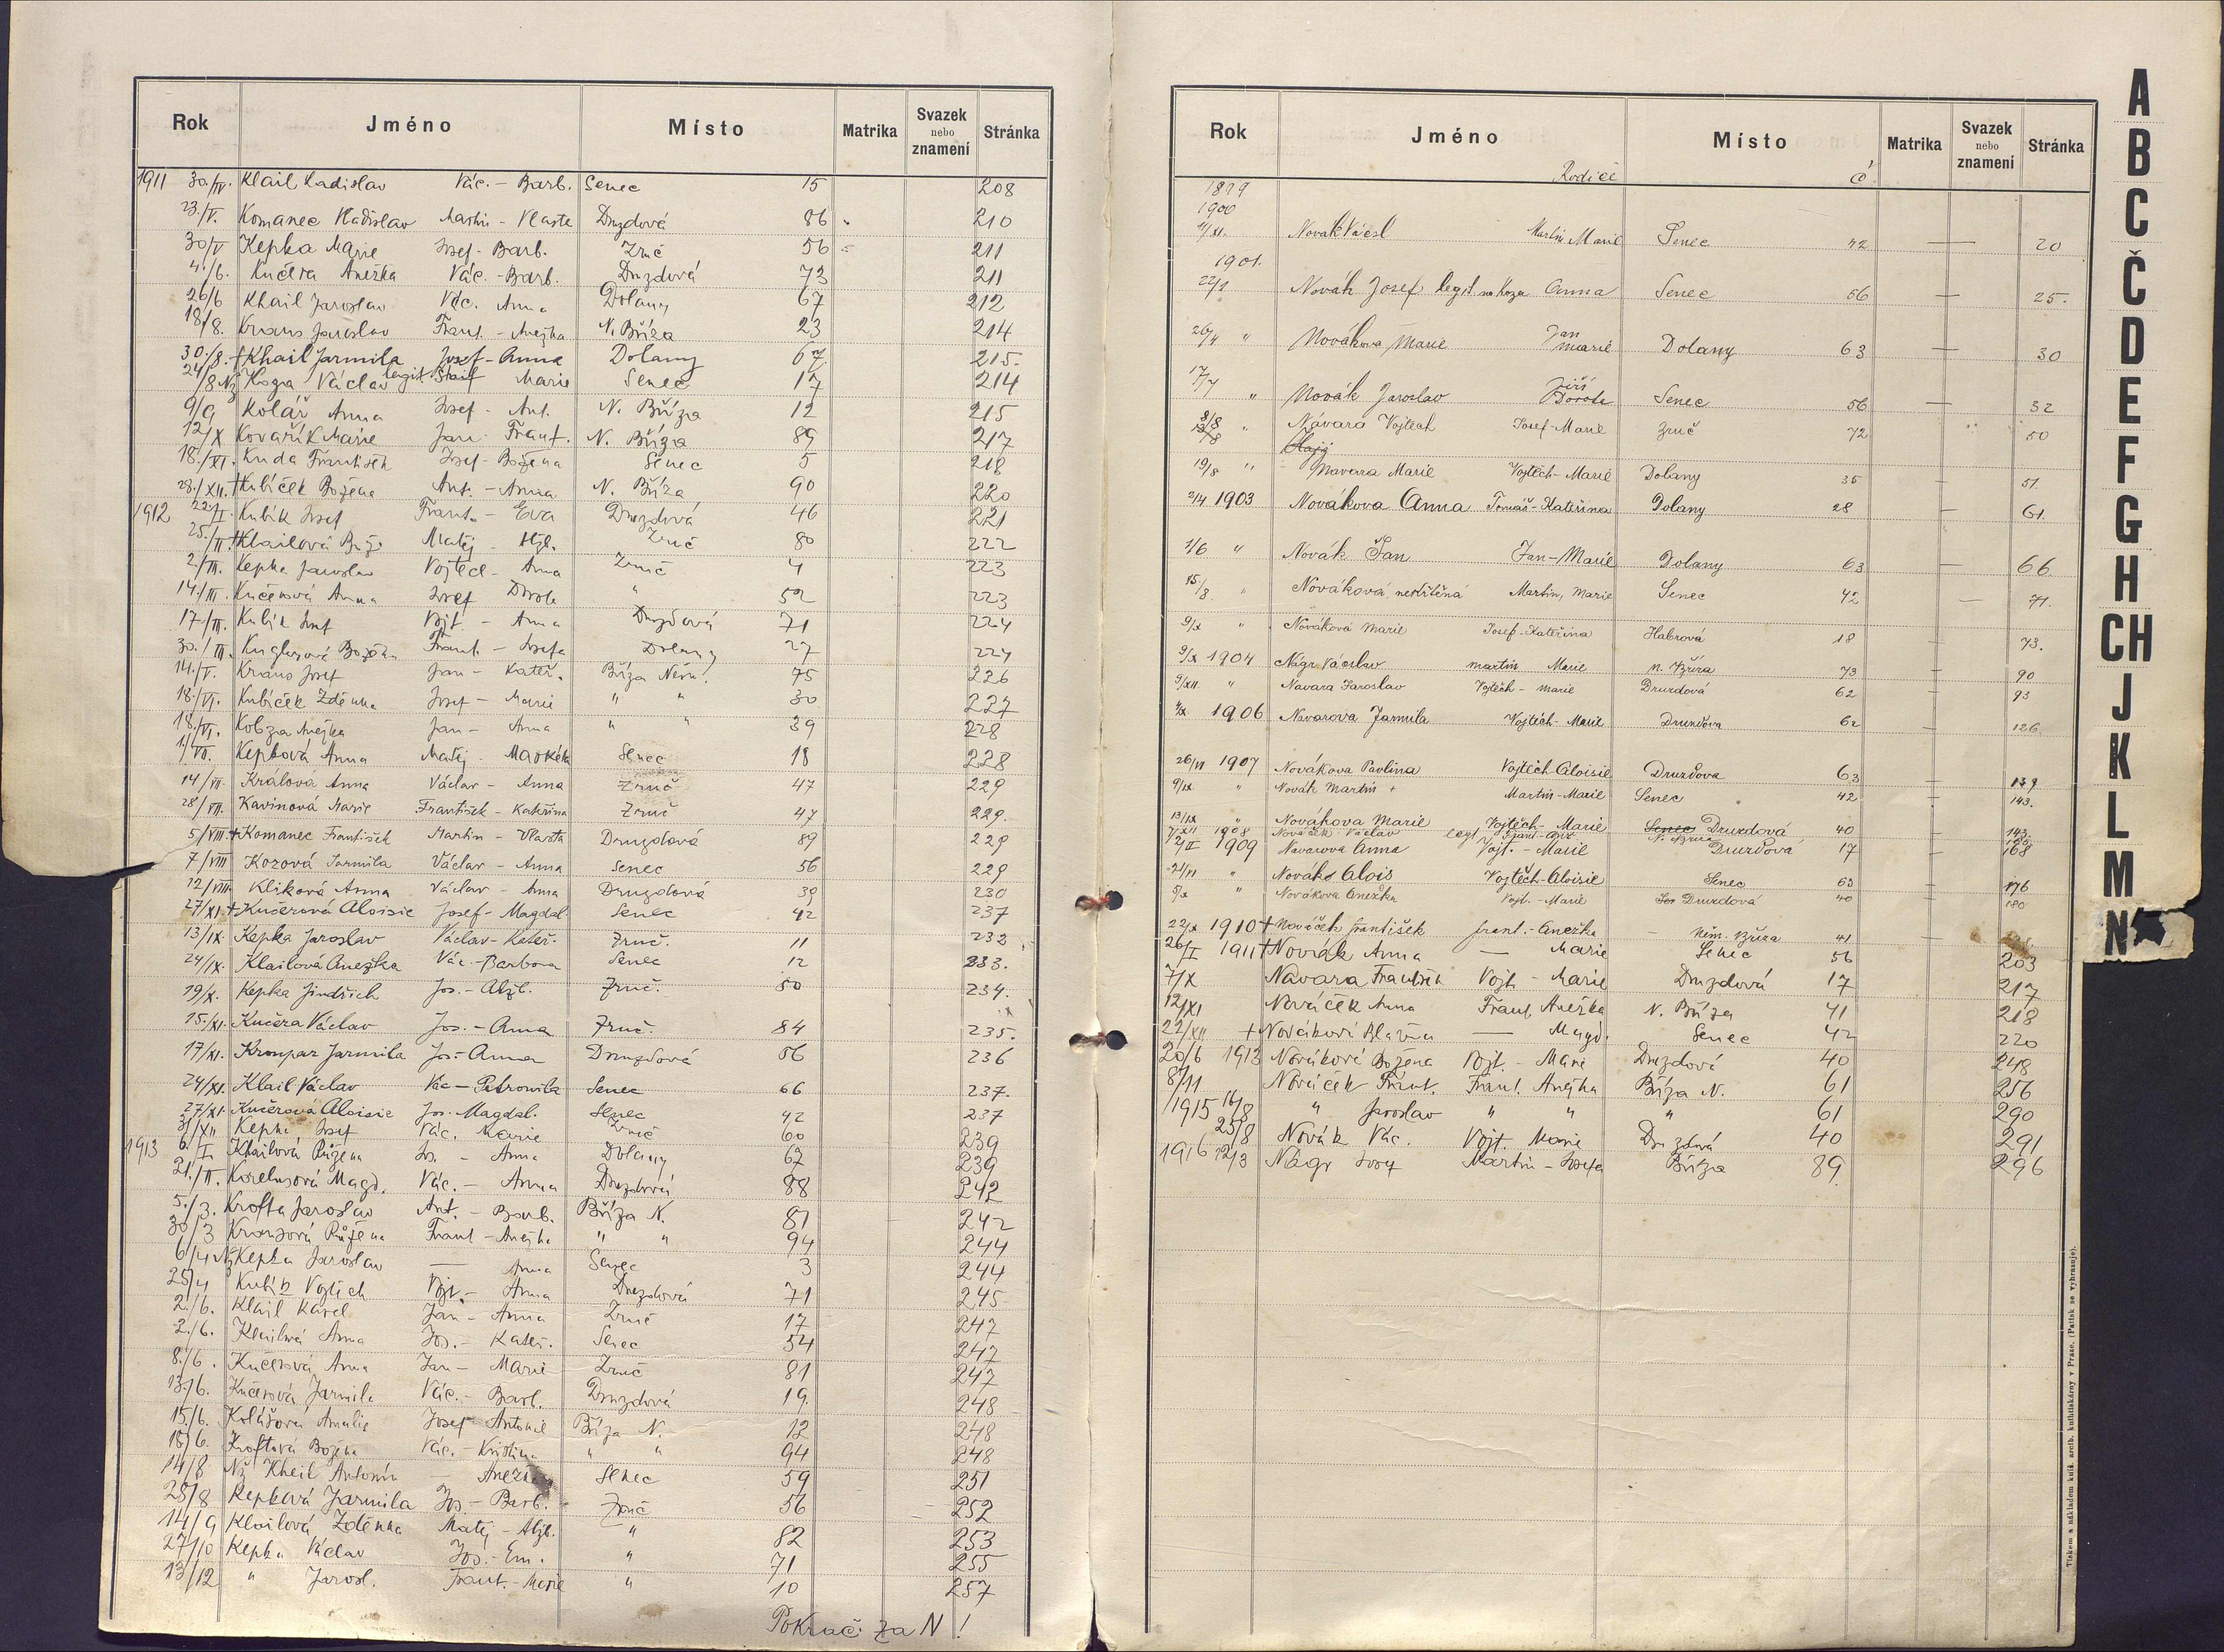 Rok Jméno Místo Matrika Svazek nebo znamení Stránka
1911 30./IV. Klail Ladislav Vác. - Barb. Senec 15 208
23./V. Komanec Vladislav Martin - Vlasta Druzdová 86 210
30/V Kepka Marie Josef - Barb. Zruč 56 211
4./6. Kučera Anežka Vác. - Barb. Druzdová 73 211
26/6 Khail Jaroslav Vác. Anna Dolany 67 212
18/8. Kraus Jaroslav Frant. - Anežka N. Bříza 23 214
30./8. † Khail Jarmila Josef - Anna Dolany 67 215.
24/8 Nž Koza Václav legit. Marie Senec 17 214
9/9 Kolář Anna Josef - Ant. N. Bříza 12 215
12/X Kovařík Marie Jan Frant. N. Bříza 89 217
18./XI. Kuda František Josef - Božena Senec 5 218
28./XII. † Kubíček Božena Ant. - Anna N. Bříza 90 220
1912 22/I. Kubík Josef Frant. - Eva Druzdová 46 221
25./II. † Klailová Matěj - Alžb. Zruč 80 222
2./III. Kepka Jaroslav Vojtěch - Anna Zruč 4 223
14./III. Kučerová Anna Josef Dorota " 52 223
17/III. Kubík Josef Vojt. - Anna Druzdová 71 224
30./III. Kuglerová Božena Frant. - Josefa Dolany 27 224
14./V. Kraus Josef Jan - Kateř. Bříza Něm. 75 226
18./VI. Kubíček Zděnka Josef - Marie " " 30 227
18./VI. Kobza Anežka Jan - Anna " " 39 228
1/VII. Kepková Anna Matěj - Markéta Senec 18 228
14/VII. Králová Anna Václav - Anna Zruč 47 229
28/VII. Kavinová Marie František - Kateřina Zruč 47 229.
5/VIII. † Komanec František Martin - Vlasta Druzdová 89 229
7/VIII Kozová Jarmila Václav - Anna Senec 56 229
12/VIII Kliková Anna Václav - Anna Druzdová 39 230
27/XI. † Kučerová Aloisie Josef - Magdal. Senec 42 237
13/IX. Kepka Jaroslav Václav - Kateř. Zruč. 11 232
24/IX. Klailová Anežka Vác. - Barbora Senec 12 233.
19/X. Kepka Jindřich Jos. - Alžb. Zruč. 50 234.
15./XI. Kučera Václav Jos. - Anna Zruč. 84 235.
17/XI. Kroupar Jarmila Jos - Anna Druzdová 86 236
24/XI. Klail Václav Vác - Petronila Senec 66 237.
27/XI. Kučerová Aloisie Jos. Magdal. Senec 42 237
3/XII Kepka Josef Vác. Marie Zruč 60 239
1913 6./I. Khailová Růžena Jos. - Anna Dolany 67 239
21./II. Korelusová Magd. Vác. - Anna Druzdová 88 242
5./3. Krofta Jaroslav Ant. - Barb. Bříza N. 81 242
30/3 Krausová Růžena Frant - Anežka " " 94 244
6/4 Nž Kepka Jaroslav — Anna Senec 3 244
25/4 Kubík Vojtěch Vojt. - Anna Druzdová 71 245
2./6. Klail Karel Jan - Anna Zruč 17 247
2./6. Klailová Anna Jos. - Kateř. Senec 54 247
8./6. Kučerová Anna Jan - Marie Zruč 81 247
13./6. Kučerová Jarmila Vác. - Barb. Druzdová 19. 248
15./6. Kolářová Amalie Josef Antonie Bříza N. 12 248
18/6. Kroftová Božena Vác. - Kristina " " 94 248
14/8 Nž Kheil Antonín — Anežka Senec 59 251
25/8 Kepková Jarmila Jos - Barb. Zruč 56 252
14/9 Klailová Zděnka Matěj - Alžb. " 82 253
27/10 Kepka Václav Jos. - Em. " 71 255
13/12 " Jarosl. Frant. - Marie " 10 257
Pokrač. za N!
Rok Jméno Místo Matrika Svazek nebo znamení Stránka
Rodiče č
1899
1900
11/XI. Novák Václ Martin Marie Senec 42 — 20
1901.
22/1 Novák Josef legit. na Koza Anna Senec 56 — 25.
26/4 " Nováková Marie Jan Marie Dolany 63 — 30
17/7 " Novák Jaroslav Jiří Dorota Senec 56 — 32
8/8 " Návara Vojtěch Josef - Marie Zruč 72 — 50
19/8 " Navara Marie Vojtěch - Marie Dolany 35 — 51.
2/4 1903 Nováková Anna Tomáš - Kateřina Dolany 28 — 61.
1/6 " Novák Jan Jan - Marie Dolany 63 — 66
15/8. " Nováková, nekřtěná Martin, Marie Senec 42 — 71.
9/X " Nováková Marie Josef - Kateřina Habrová 18 — 73.
9/X 1904 Nágr Václav Martin Marie N. Bříza 73 — 90
9/XII. " Navara Jaroslav Vojtěch - Marie Druzdová 62 — 93
1906 Navarova Jarmila Vojtěch - Marie Druzdova 62 — 126
26/VI 1907 Novákova Pavlina Vojtěch - Aloisie Druzdova 63 — 139
9/IX. " Novák Martin + Martin - Marie Senec 42 — 143.
13/IX " Novákova Marie Vojtěch - Marie Senec Druzdová 40 — 143.
1908 Nováček Václav legt. Frant - Anž. N. Bříza
2/II 1909 Navarova Anna Vojt. - Marie Druzdová 17 168
24/VI " Novák Alois Vojtěch - Aloisie Senec 63 176
5/X " Novákova Anežka Vojt. - Marie Druzdová 40 180
22/X 1910 † Nováček František Frant. - Anežka Něm. Bříza 41
26/I 1911 † Novák Anna — Marie Senec 56 203
7/X Navara František Vojt - Marie Druzdová 17 217
12/XI Nováček Anna Frant. Anežka N. Bříza 41 218
22/XII + Nováková Blažena — Magd. Senec 42 220
20/6 1913 Nováková Božena Vojt. - Marie Druzdová 40 248
8/11 Nováček Frant. Frant. Anežka Bříza N. 61 256
1915 16/8 " Jaroslav " " " 61 290
25/8 Novák Vác. Vojt. Marie Druzdová 40 291
1916 12/3 Nágr Josef Martin - Josefa Bříza 89. 296
A
B
C
Č
D
E
F
G
H
CH
J
K
L
M
N